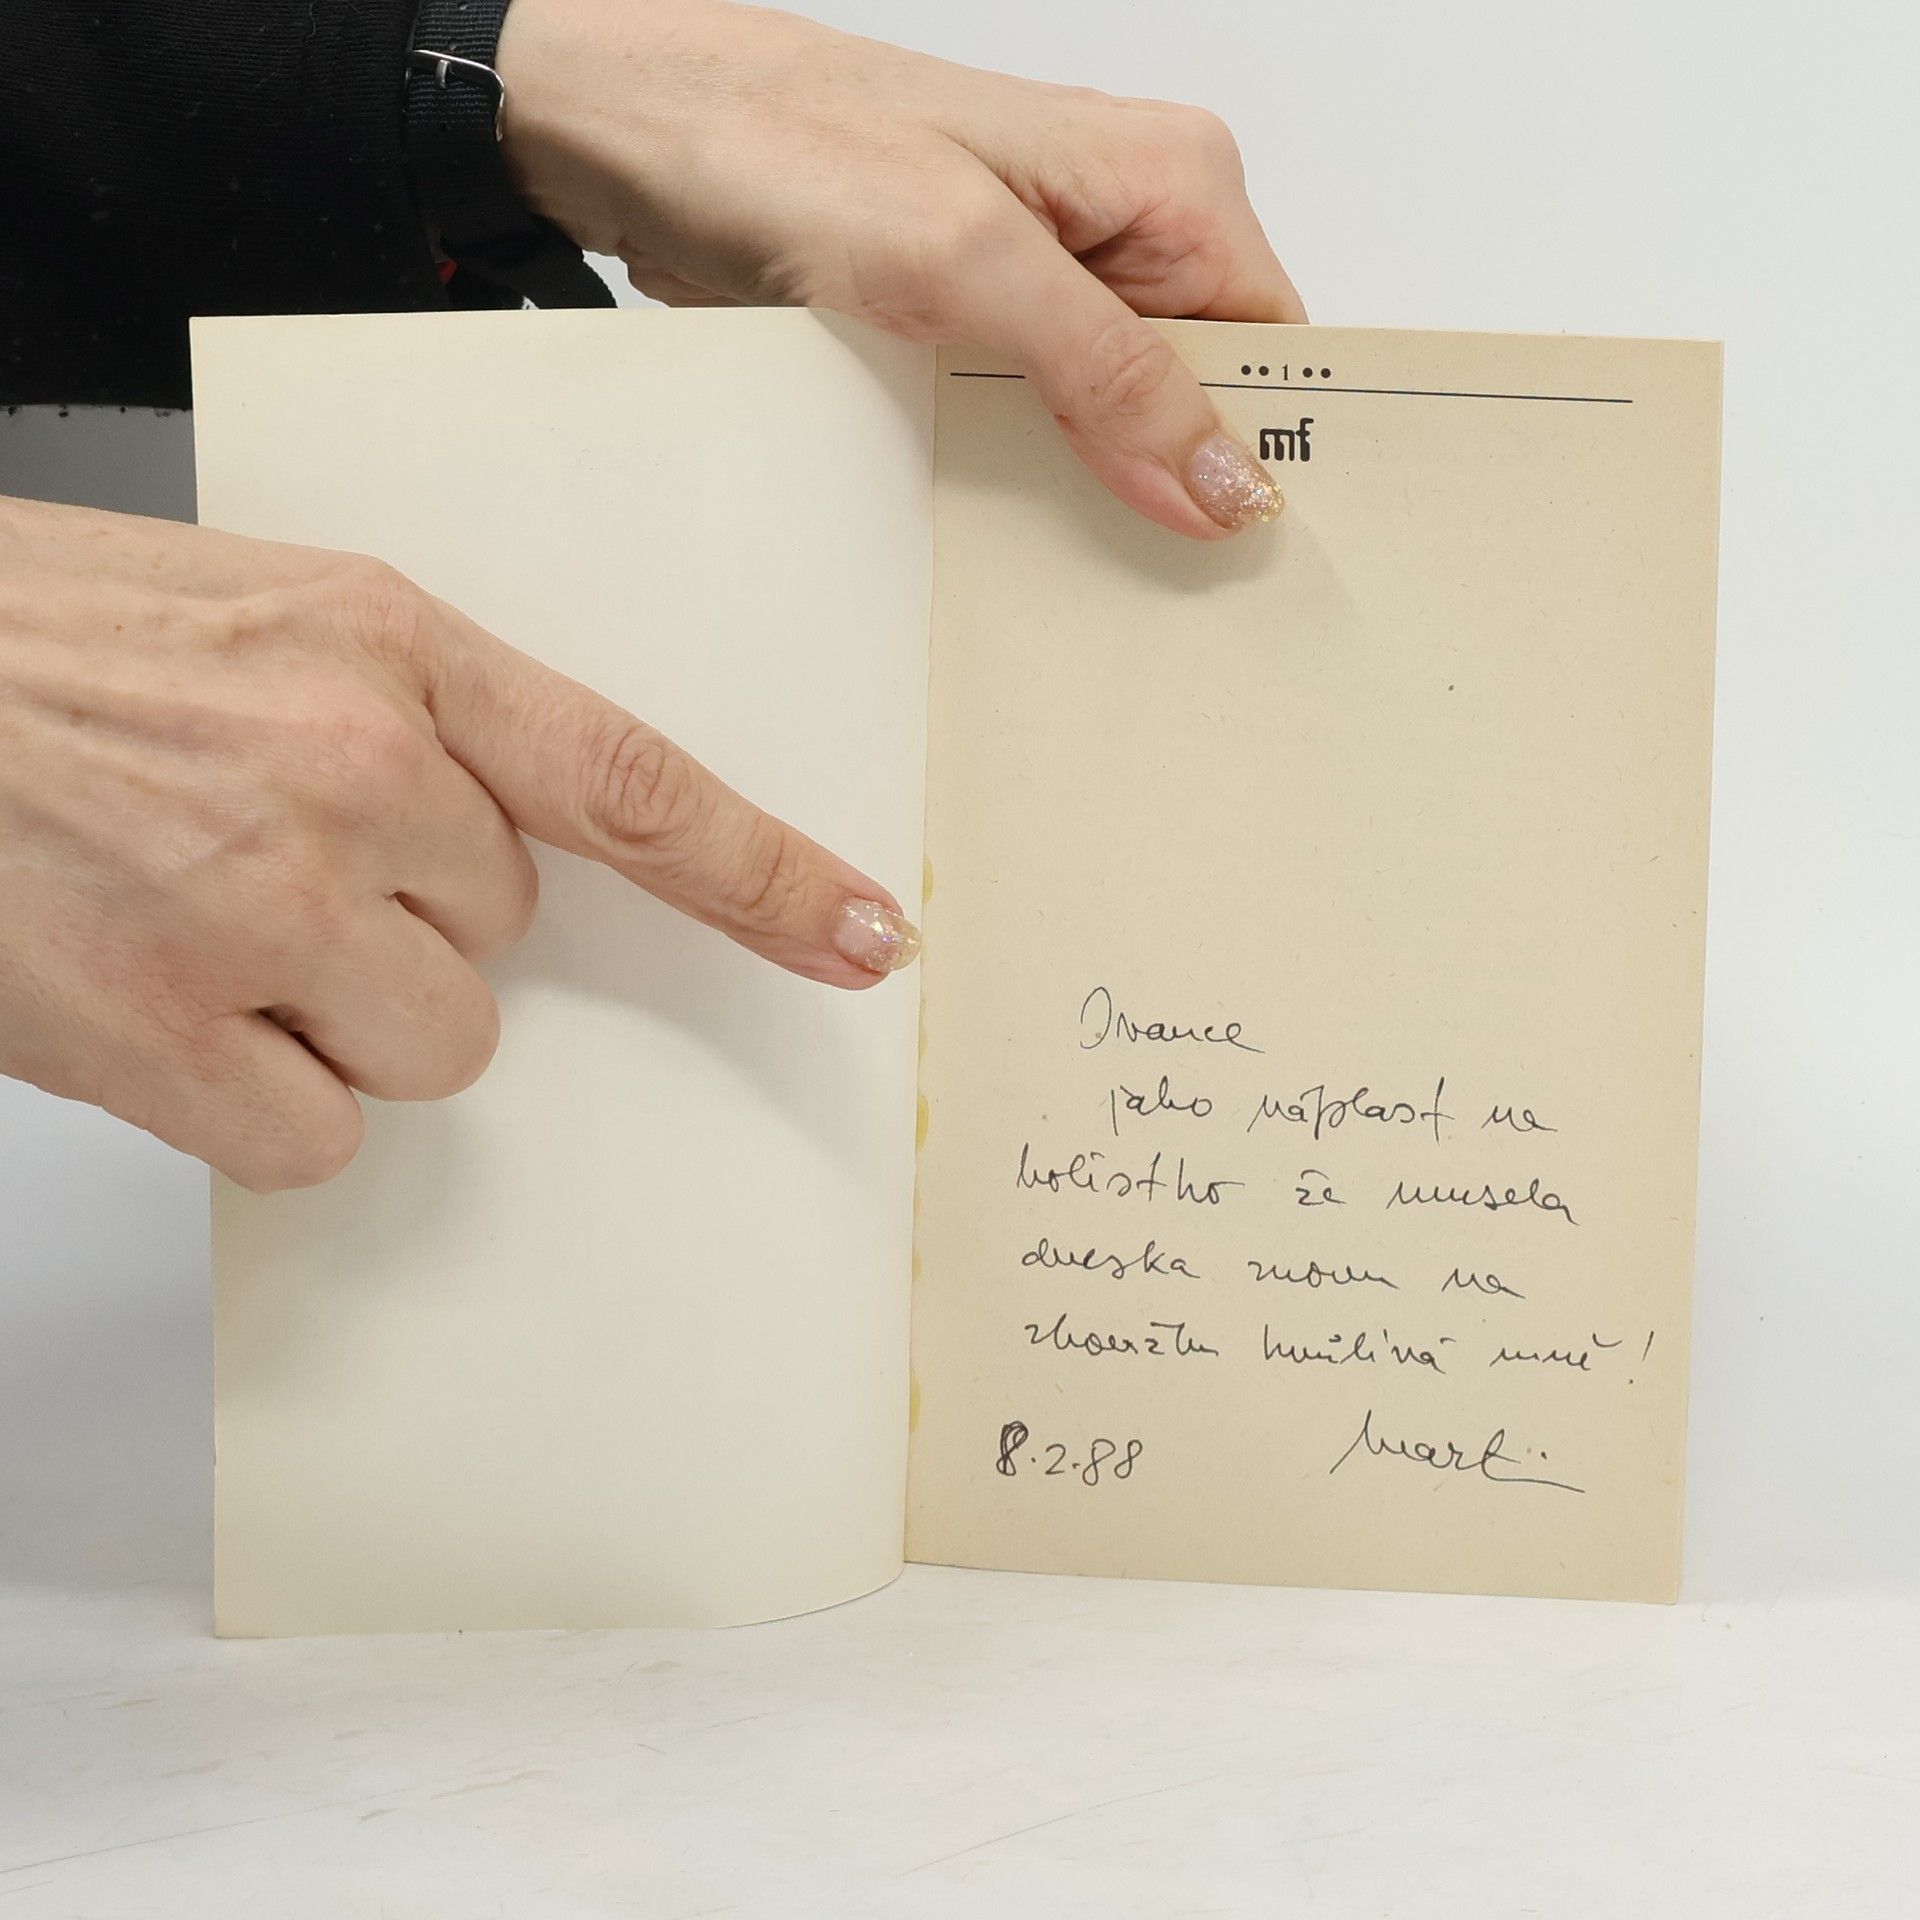 •• 1 ••
mf
Ivance
jako náplast na
bolístko že musela
dneska znovu na
zkoušku kvůlivá mně!
8.2.88
Martin